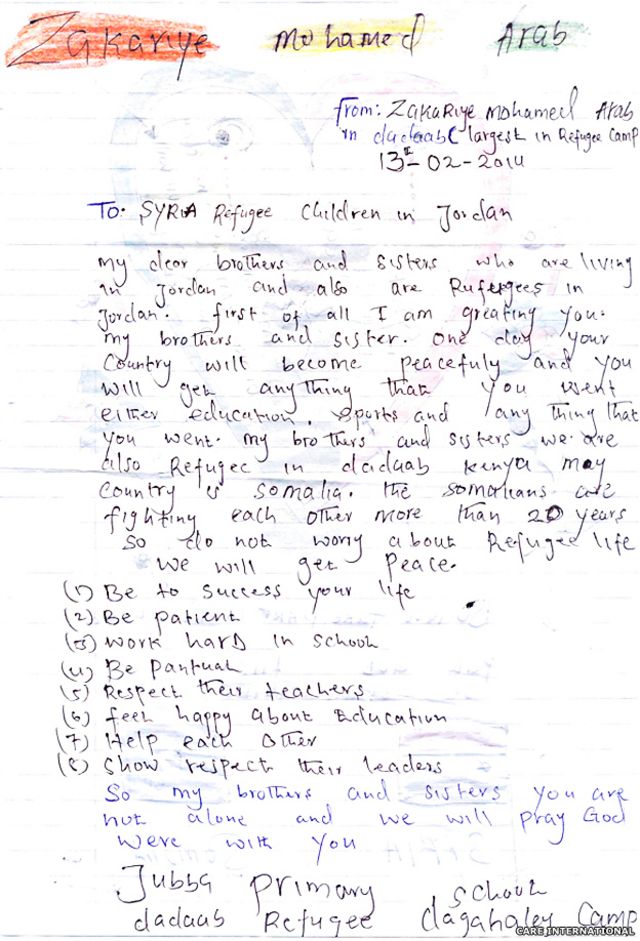 Zakariye Mohamed Arab
From: Zakariye Mohamed Arab
in dadaab( largest in Refugee Camp
13th-02-2014
To: SYRIA Refugee children in Jordan
my dear brothers and sisters who are living
in Jordan and also are Rufergees in
Jordan. first of all I am greating you.
my brothers and sister. one day your
Country will become peacefuly and you
will get anything that you went
either education, sports and any thing that
you went. my brothers and sisters we are
also Refugee in dadaab Kenya may
Country is somalia. the somalians are
fighting each other more than 20 years
so do not worry about Refugee life
we will get peace.
(1) Be to success your life
(2) Be patient
(3) work harD in school
(4) Be pantual
(5) Respect their teachers
(6) feel happy about Education
(7) Help each other
(8) show respect their leaders
So my brothers and sisters you are
not alone and we will pray God
were with you
Jubba primary school
dadaab Refugee dagahaley Camp
CARE INTERNATIONAL